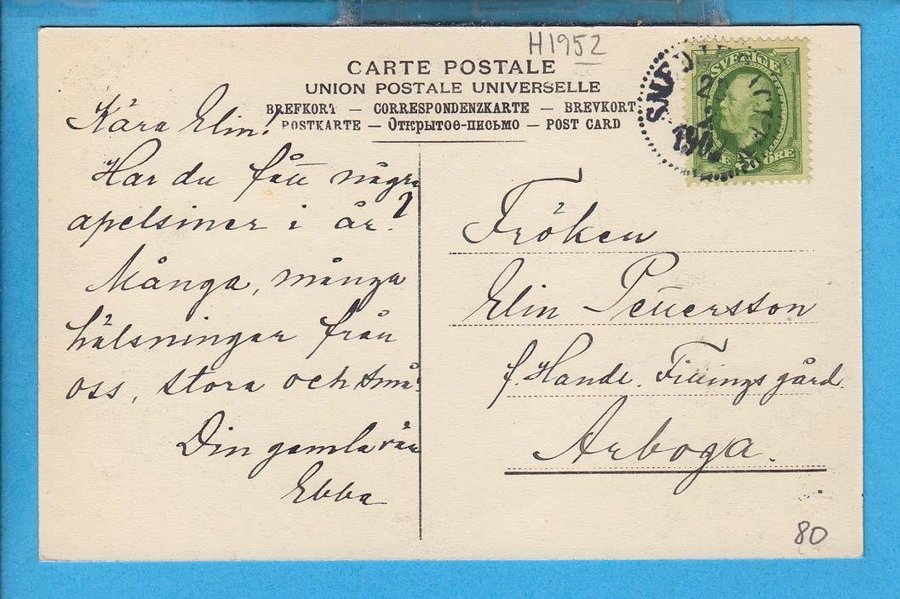 H1952
CARTE POSTALE
UNION POSTALE UNIVERSELLE
BREFKORT — CORRESPONDENZKARTE — BREVKORT
POSTKARTE — Открытое-письмо — POST CARD
SVERIGE
ÖRE
Kära Elin!
Har du fått några
apelsiner i år?
Många, många
hälsningar från
oss, stora och små.
Din gamla vän
Ebba
Fröken
Elin Pettersson
Arboga.
80